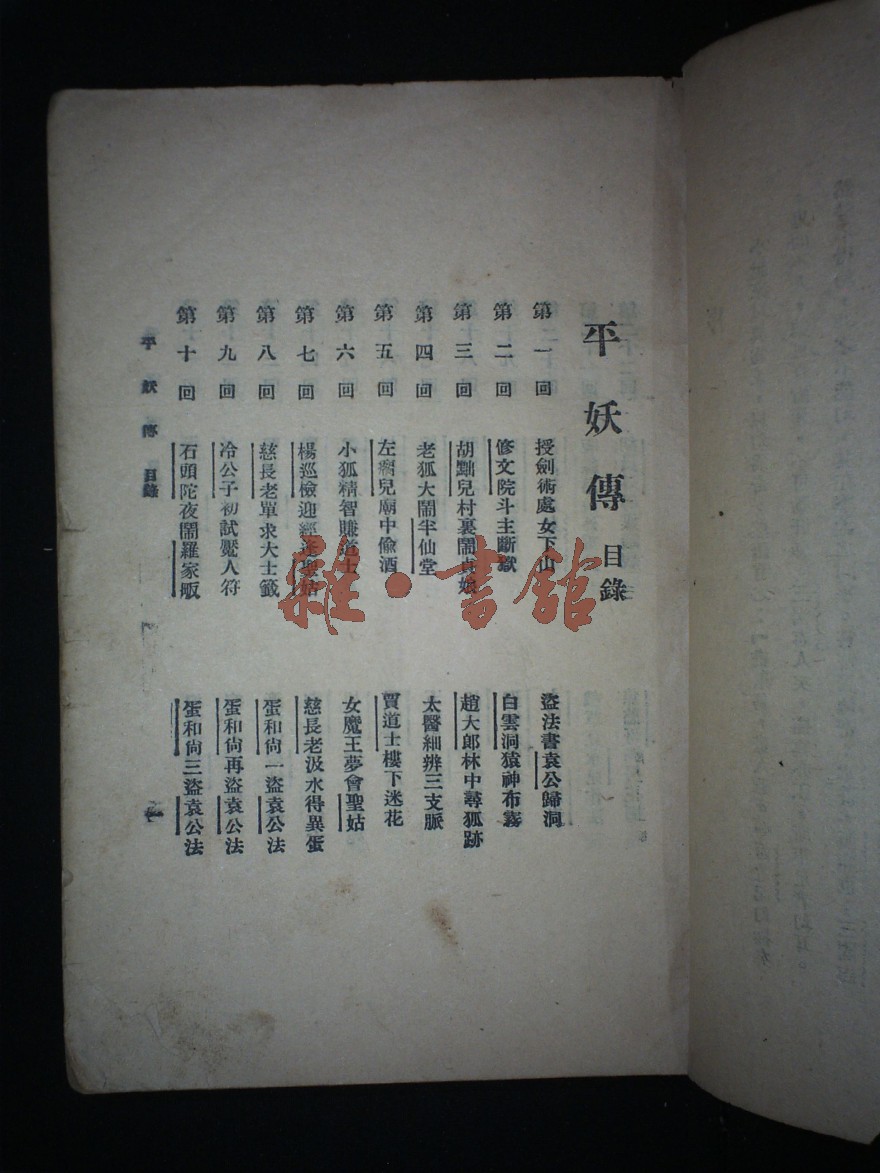 平妖傳 目錄
第一回 授劍術處女下山 盜法書袁公歸洞
第二回 修文院斗主斷獄 白雲洞猿神布霧
第三回 胡黜兒村裏鬧貞娘 趙大郎林中尋狐跡
第四回 老狐大鬧半仙堂 太醫細辨三支脈
第五回 左瘸兒廟中偷酒 賈道士樓下迷花
第六回 小狐精智賺道士 女魔王夢會聖姑
第七回 楊巡檢迎經逢聖姑 慈長老汲水得異蛋
第八回 慈長老單求大士籤 蛋和尙一盜袁公法
第九回 冷公子初試魘人符 蛋和尙再盜袁公法
第十回 石頭陀夜鬧羅家畈 蛋和尙三盜袁公法
平妖傳 目錄
雜·書館